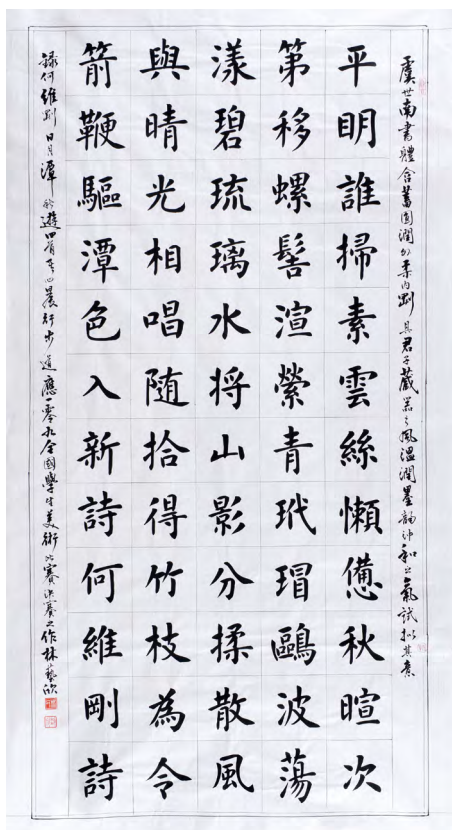 虞世南書體含蓄圓潤外柔內剛具君子藏器之風溫潤墨韵沖和之氣試拟其意
平明誰掃素雲絲懶憊秋暄次
第移螺髻渲縈青玳瑁鷗波蕩
漾碧琉璃水将山影分揉散風
與晴光相唱随拾得竹枝為令
箭鞭驅潭色入新詩何維剛詩
録何維剛日月潭紀遊四首其四晨行步道應一零九全國學生美術比賽決賽之作林藝欣